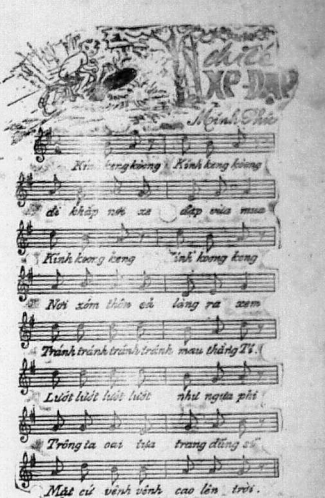 chiếc
XE-ĐẠP
Minh Thu
Kính keng koong Kính keng koong
đi khắp nơi xe đạp vừa mua
Kính koong keng Kính koong keng
Nơi xóm thôn cả làng ra xem
Tránh tránh tránh tránh mau thằng Tí!
Lướt lướt lướt lướt như ngựa phi
Trông ta oai tựa trang dũng sĩ
Mặt cứ vênh vênh cao lên trời.